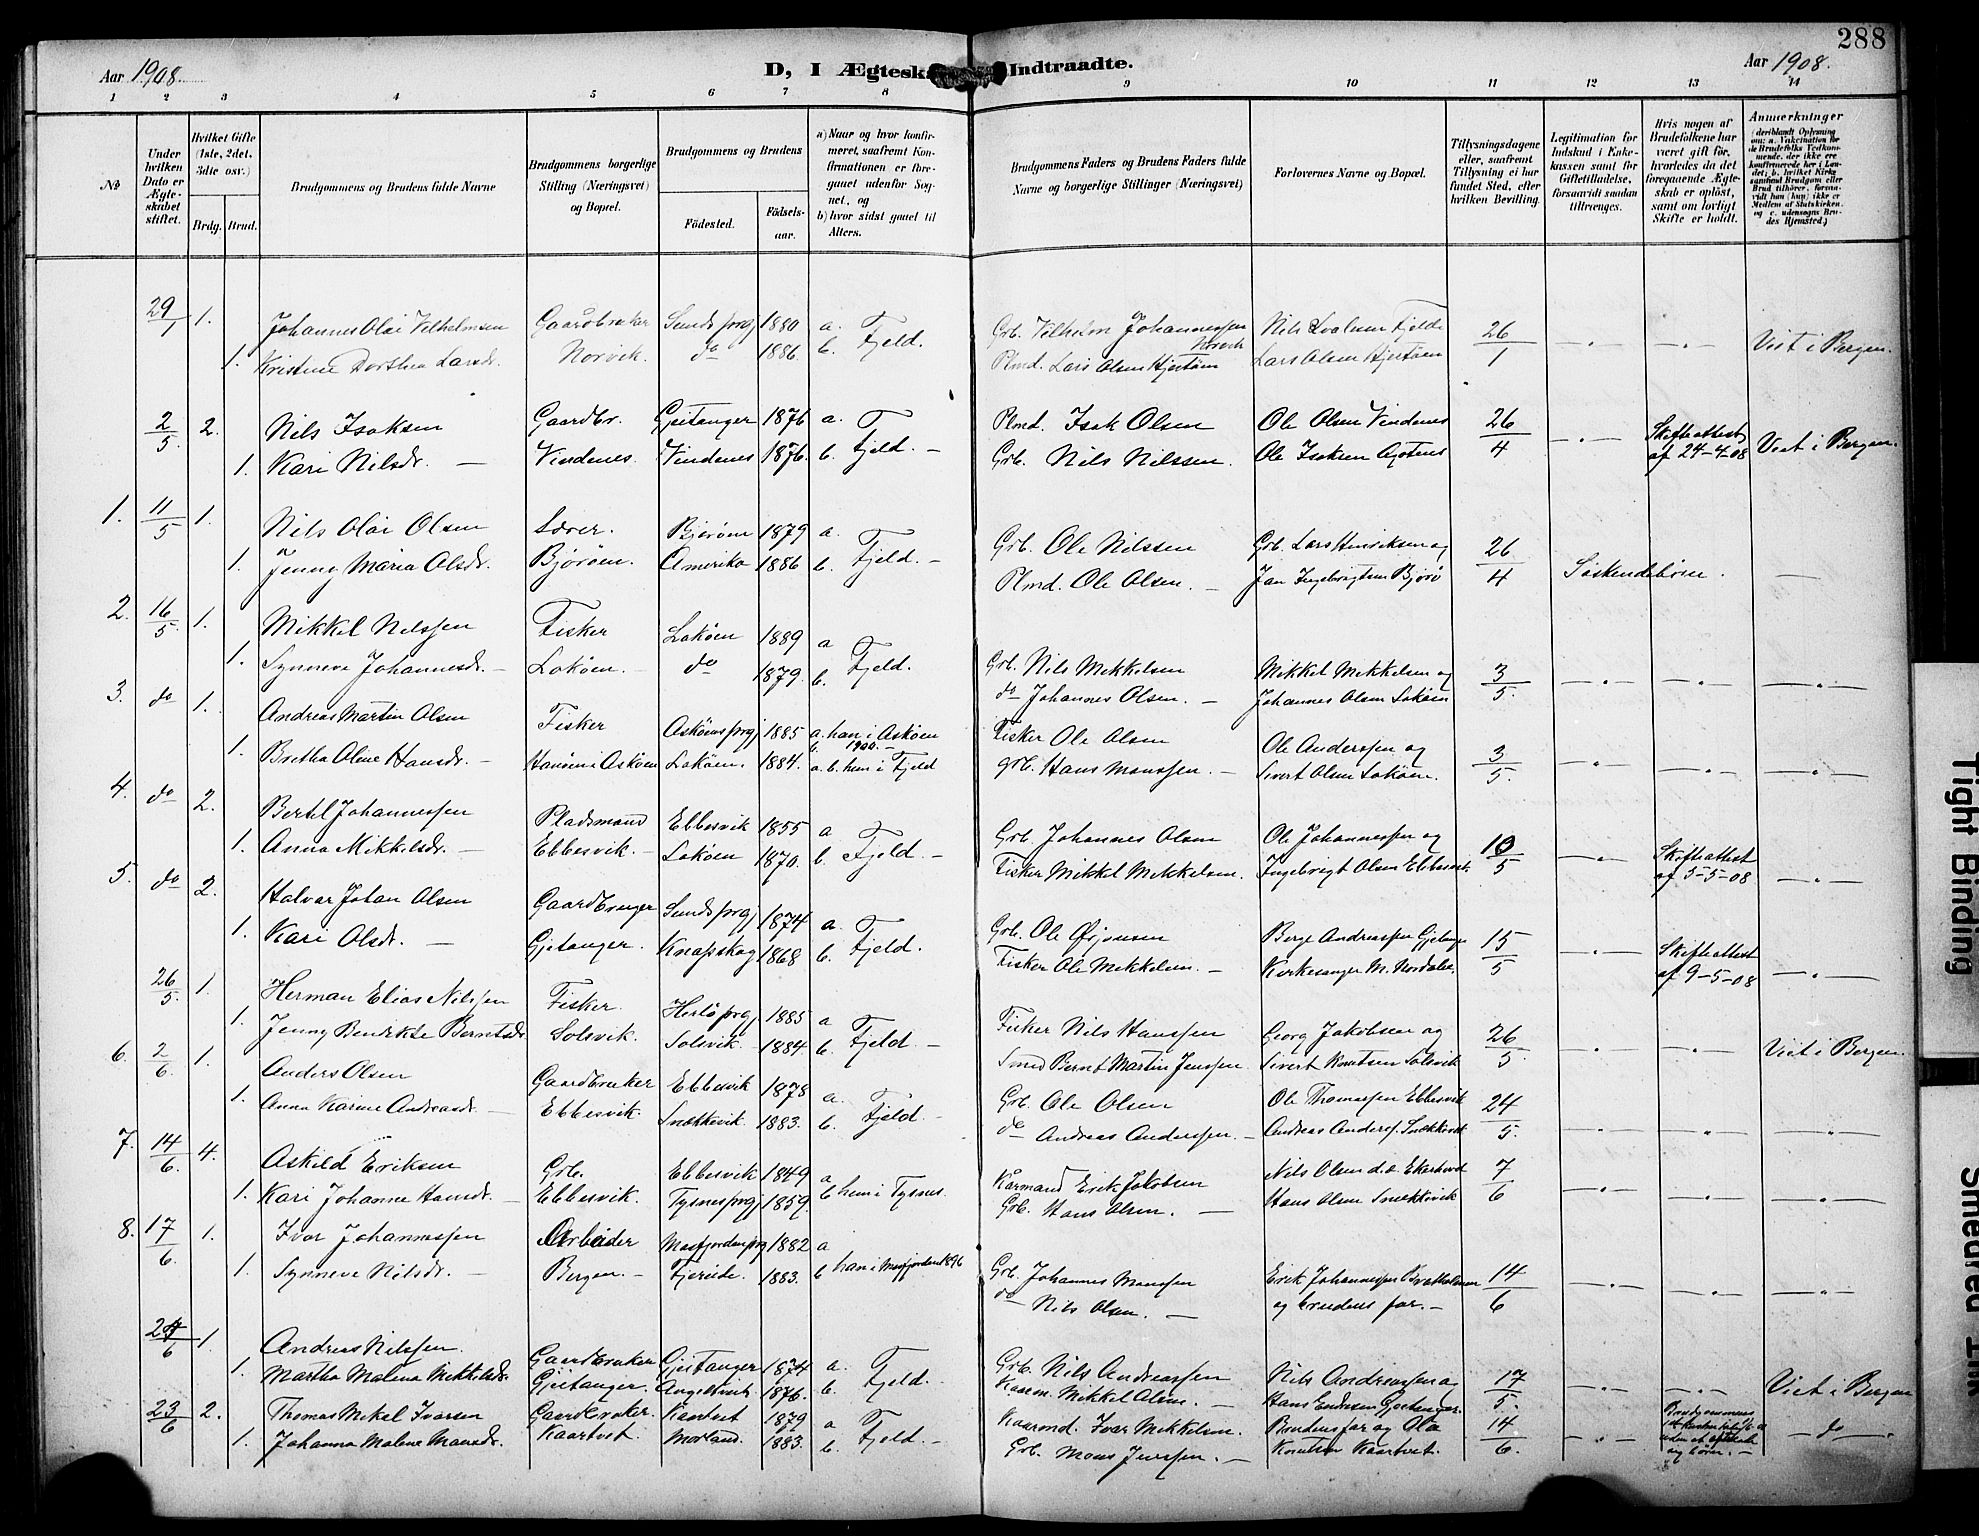 288
Aar 1908.
D, I Ægteska
Indtraadte.
Aar 1908.
1 2 3 4 5 6 7 8 9 10 11 12 13 14
No
Under hvilken Dato er Ægteskabet stiftet.
Hvilket Gifte (1ste, 2det, 3dte osv.)
Brdg. Brud.
Brudgommens og Brudens fulde Navne
Brudgommens borgerlige Stilling (Næringsvei) og Bopæl.
Brudgommens og Brudens
Fødested.
Fødselsaar.
a) Naar og hvor konfirmeret, saafremt Konfirmationen er foregaaet udenfor Sognet, og
b) hvor sidst gaaet til Alters.
Brudgommens Faders og Brudens Faders fulde Navne og borgerlige Stillinger (Næringsvei)
Forlovernes Navne og Bopæl.
Tillysningsdagene eller, saafremt Tillysning ei har fundet Sted, efter hvilken Bevilling.
Legitimation for Indskud i Enkekassen samt for Giftetilladelse, forsaavidt saadan tiltrænges.
Hvis nogen af Brudefolkene har været gift før, hvorledes da det foregaaende Ægteskab er opløst, samt om lovligt Skifte er holdt.
Anmerkninger
29/1 1. Johannes Olai Vilhelmsen Gaardbruker Sunds prgj 1880 a. Fjeld. Grb. Vilhelm Johannessen Norvik 26/1 Viet i Bergen.
1. Kristine Dorthea Larsdr. Norvik. do 1886. b. Plmd. Lars Olsen Hjertøen Lars Olsen Hjertøen
2/5 2. Nils Isaksen Gaardbr. Gjeitanger 1876 a. Fjeld. Plmd. Isak Olsen Ole Olsen Vindenes 26/4 Skifteattest af 24-4-08 Viet i Bergen.
1. Kari Nilsdr. Vindenes. Vindenes 1876. b. Grb. Nils Nilssen. Ole Isaksen Agotnes
1. 11/5 1. Nils Olai Olsen Lærer. Bjørøen 1879 a. Fjeld. Grb. Ole Nilssen Grb. Lars Henriksen og 26/4 Søskendebørn.
1. Jenny Maria Olsdr. Bjørøen. Amerika 1886 b. Plmd. Ole Olsen. Jan Ingebrigtsen Bjørø
2. 16/5 1. Mikkel Nilssen Fisker Lokøen 1889 a Fjeld. Grb. Nils Mikkelsen Mikkel Mikkelsen og 3/5
1. Synneve Johannesdr. Lokøen. do 1879. b. do Johannes Olsen. Johannes Olsen Lokøen
3. do 1. Andreas Martin Olsen Fisker Askøens prgj 1885 a. han i Askøen 1900. Fisker Ole Olsen Ole Anderssen og 3/5
1. Bretha Oline Hansdr. Hanøen i Askøen Lokøen. 1884. a. b. hun i Fjeld Grb. Hans Monssen. Sivert Olsen Lokøen.
4. do 2. Bertel Johannessen Pladsmand Ebbesvik 1855 a Fjeld. Grb. Johannes Olsen Ole Johannessen og 10/5 Skifteattest af 5-5-08
1. Anna Mikkelsdr. Ebbesvik. Lokøen 1870. b. Fisker Mikkel Mikkelsen. Ingebrigt Olsen Ebbesvik.
5. do 2. Halvar Johan Olsen Gaardbruger Sunds prgj 1874 a. Fjeld. Grb. Ole Ørjansen Berge Andreassen Gjetanger 15/5 Skifteattest af 9-5-08
1. Kari Olsdr. Gjetanger. Knapskog 1868 b. Fisker Ole Mikkelsen. Kirkesanger M. Nordalse
26/5 1. Herman Elias Nilssen Fisker Herlø prgj 1885 a Fjeld Fisker Nils Hanssen Georg Jakobsen og 26/5 Viet i Bergen.
1. Jenny Bendikte Berntsdr. Solsvik. Solsvik. 1884 b. Smed Bernt Martin Jenssen. Sivert Knutsen Solsvik
6. 2/6 1. Anders Olsen Gaardbruker Ebbesvik 1878 a. Fjeld. Grb. Ole Olsen Ole Thomassen Ebbesvik 24/5.
1. Anna Karine Andreasdr. Ebbesvik. Snekkevik 1883. b. do Andreas Anderssen. Andreas Anders. Snekkevik
7. 14/6 4. Askild Eriksen Grb. Ebbesvik 1849 a Kårmand Erik Jakobsen Nils Olsen 7/6
1. Kari Johanne Hansdr. Ebbesvik. Tysnes prgj 1859 b hun i Tysnes. Grb. Hans Olsen. Hans Olsen Snekkevik
8. 17/6 1. Ivar Johannessen Arbeider Masfjorden prg 1882 a Grb. Johannes Monssen Erik Johannessen Brattholmen 14/6
1. Synneve Nilsdr. Bergen. 1883. b han i Masfjorden 1896 do Nils Olsen. og brudens far.
24/6 1. Andreas Nilssen. Gaardbruker Gjeitanger 1874 a. Fjeld. Grb. Nils Andreassen Nils Andreassen og 17/5. Viet i Bergen
1. Martha Malena Mikkelsdr. Gjeitanger. Angeltveit 1876. b. Kaarm. Mikkel Olsen. Hans Endresen Gjetanger.
23/6 2. Thomas Mikal Ivarsen Gaardbruker. Kaartvet 1879 a Fjeld. Kaarmd. Ivar Mikkelsen. Brudens far og Ola 14/6. do
1. Johanna Malene Monsdr. Kaartvet. Morland. 1883. b. Grb. Mons Jenssen. Knutsen Kaartvet.
Tight Binding
Smeared Ink